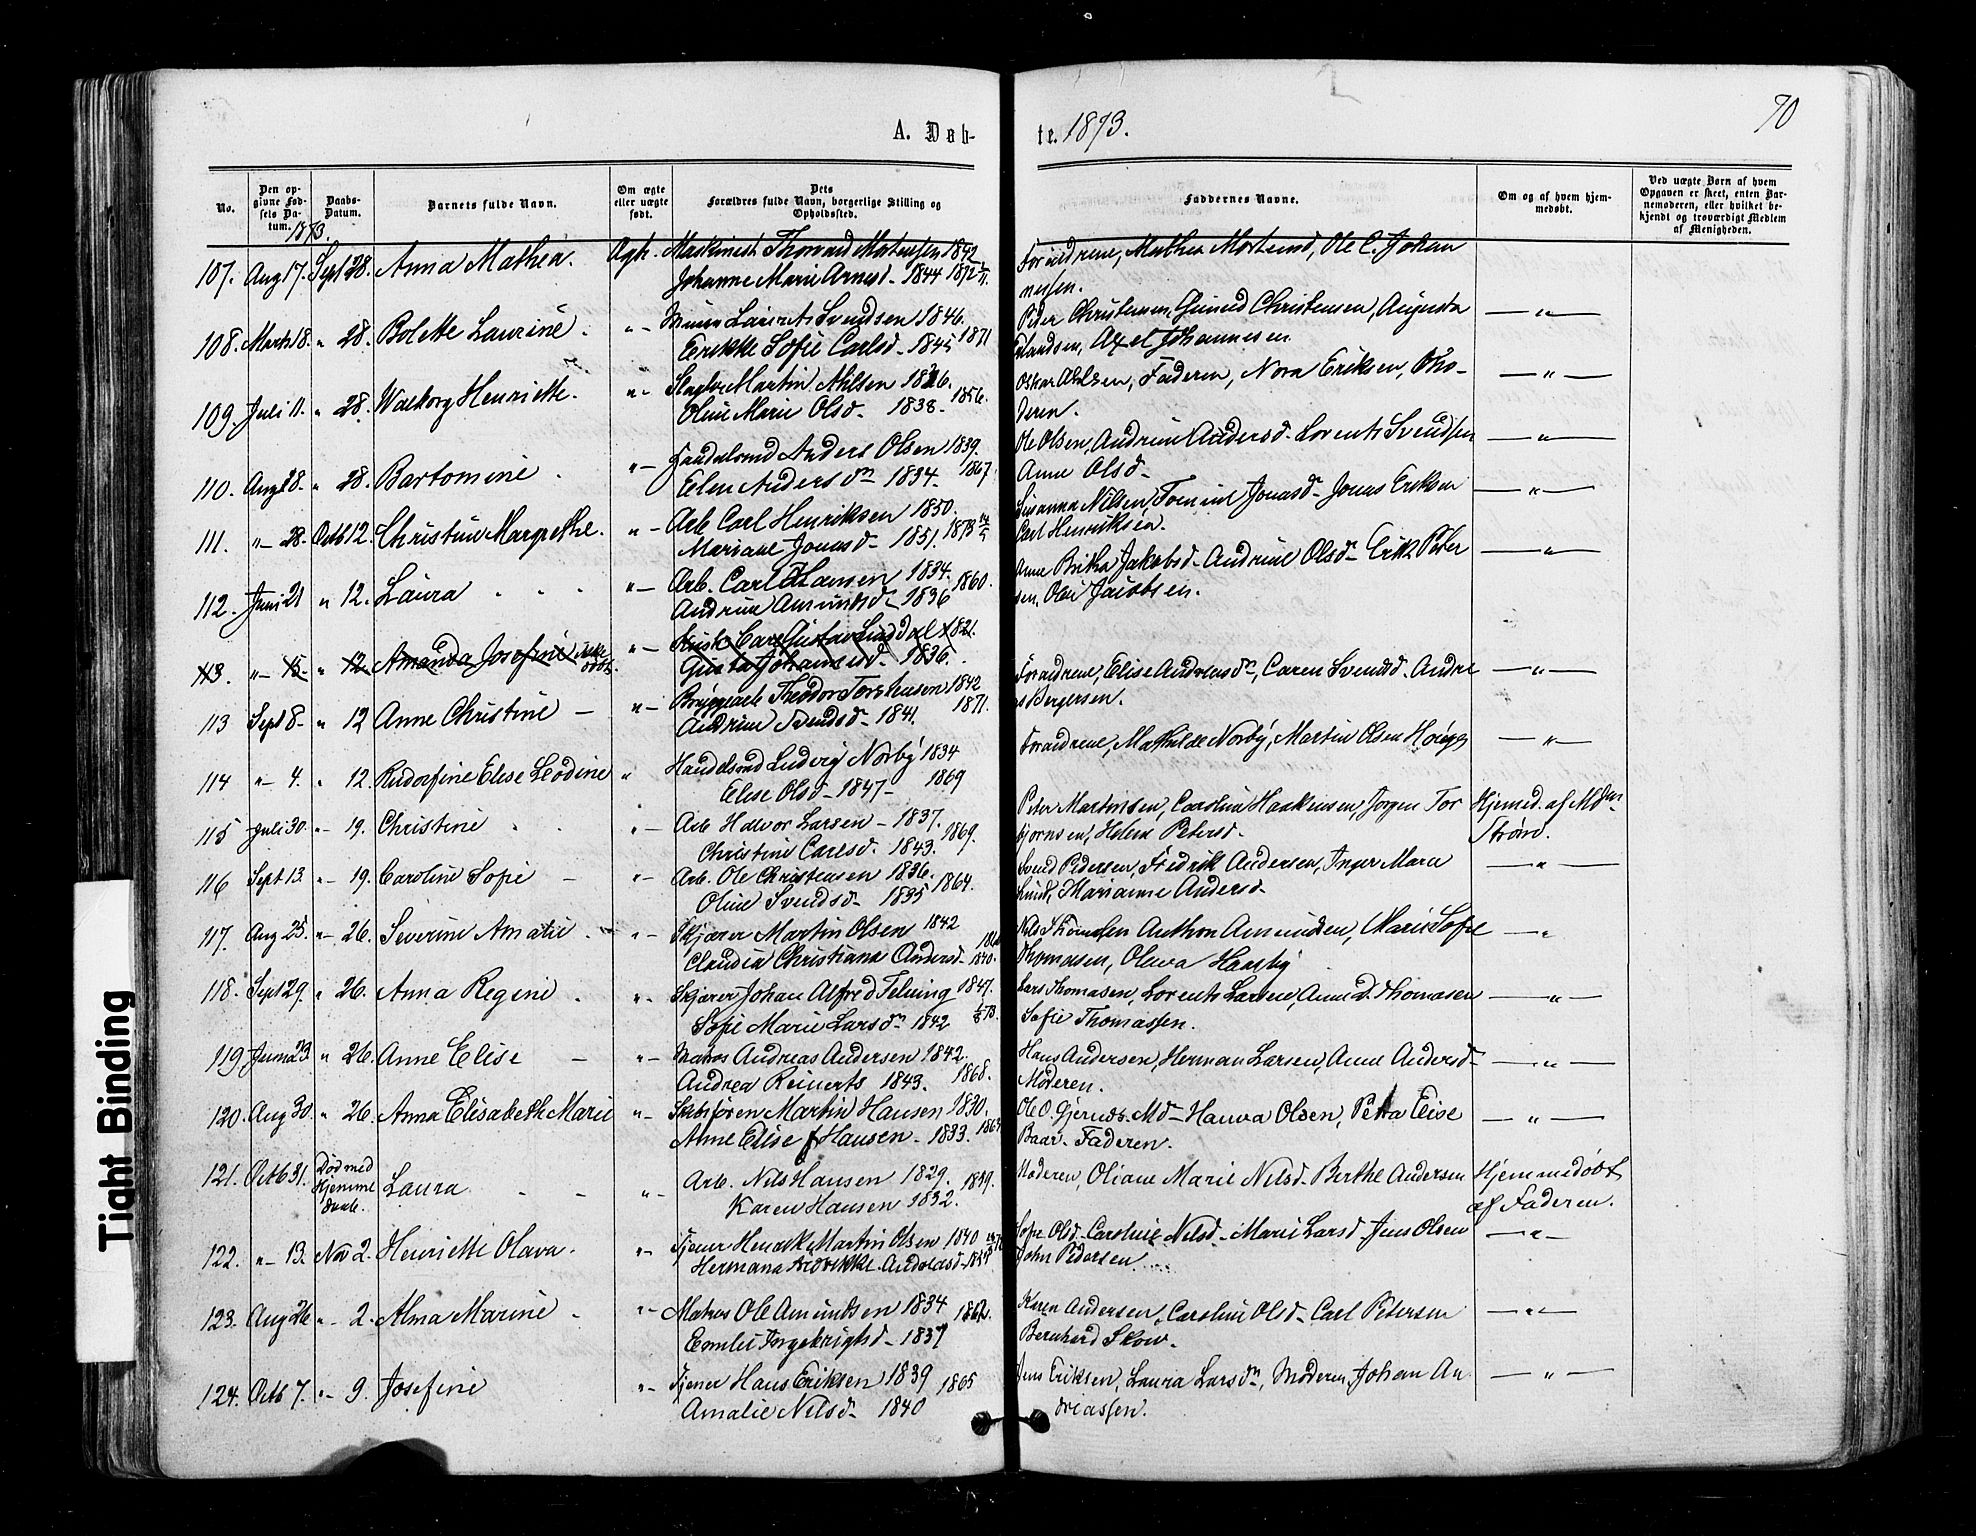 70
A. Døb-
te. 1873.
No.
Den op-
givne Fød-
sels Da-
tum.
1873.
Daabs-
Datum.
Barnets fulde Navn.
Om ægte
eller uægte
født.
Dets
Forældres fulde Navn, borgerlige Stilling og
Opholdssted.
Faddernes Navne.
Om og af hvem hjem-
medøbt.
Ved uægte Børn af hvem
Opgaven er skeet, enten Bar-
nemoderen, eller hvilket be-
kjendt og troværdigt Medlem
af Menigheden.
107. Aug 17. Sept 28. Anna Mathea. Ægte. Maskinist Thorvard Mortensen 1842
Johanne Marie Arnesd. 1844 1872
Forældrene, Mathea Mortensd, Ole C. Johan
nessen.
108. Marts 18. " 28. Bolette Laurine. " Murer Laurits Svendsen 1846.
Erikke Sofie Carlsd. 1845 1871
Peder Christensen, Gunild Christensen, Augusta
Erlandsen, Axel Johannesen — " —
109. Juli 11. " 28. Walborg Henriette. " Martin Ahlsen
Oline Marie Olsd. 1838. 1856.
Oskar Ahlsen, Faderen, Nora Eriksen, Mo-
deren. — " —
110. Aug 18. " 28. Bartomine . " Handelsmd Anders Olsen 1839.
Elen Andersdn 1834. 1867.
Ole Olsen, Andrine Andersd. Lorents Svendsen
Anne Olsd. — " —
111. " 28. Octb 12. Christine Margrethe. " Arb Carl Henriksen 1850.
Mariane Jonasd. 1851. 1873
Susanna Nilsen, Tomine Jonasd. Jonas Eriksen
Carl Henriksen. — " —
112. Juni 21 " 12. Laura " Arb. Carl Hansen 1834.
Andrine Amundsd. 1836 1860.
Anne Brikka Jakobsd. Andrine Olsd. Erik Peter
sen, Ole Jacobsen. — " —
113. " 15. " 12. Amanda Josefine ikke
døbt. " Carl Gustav Lind 1821.
Gusta Johannesd. 1836.
113 Sept 8. " 12 Anne Christine — " Bryggearb Theodor Torstensen 1842
Andrine Svendsd. 1841. 1871.
Forældrene, Elise Andreasdn, Caren Svendsd. Andre
as Bergersen. — " —
114 " 4. " 12. Rudolfine Elise Leodine " Handelsmd Ludvig Norby 1834
Elise Olsd. 1847 1869
Forældrene, Mathilde Norby, Martin Olsen — " —
115 Juli 30. " 19. Christine " Arb Halvor Larsen 1837.
Christine Carlsd. 1843. 1869.
Peter Martinsen, Caroline Haakensen, Jørgen Tor
bjørnsen, Helene Petersd.
Hjemmed. af
Strøm.
116 Sept 13. " 19. Caroline Sofie — " Arb. Ole Christensen 1836.
Oline Svendsd. 1835 1864.
Svend Pedersen, Fredrik Andersen, Inger Marie
Lund, Marianne Andersd. — " —
117. Aug 25. " 26. Severine Amalie . " Skjærer Martin Olsen 1842
Claudia Christiana Andersd. 1840.
Nils Thomasen Anthon Amundsen, Marie Sofie
Thomasen, Oleva Haneby — "
118. Sept 29. " 26. Anna Regine . " Skjærer Johan Alfred Felning 1847.
Sofie Marie Larsdn 1842
Lars Thomasen, Lorents Larsen, Anne D. Thomasen
Sofie Thomassen. — " —
119. Juni 23. " 26. Anne Elise — " Matros Andreas Andersen 1842.
Andrea Reinerts 1843. 1868.
Hans Andersen, Herman Larsen, Anne Andersd.
Moderen. — " —
120. Aug 30. " 26. Anna Elisabeth Marie " Skibsføren Martin Hansen 1830.
Anne Elise Hansen 1833.
Ole O. Hauva Olsen, Petra Elise
Baar. Faderen. — " —
121. Octb 31. Død med
Hjemme
daab. Laura " Arb. Nils Hansen 1829.
Karen Hansen 1832. 1859.
Moderen, Oliane Marie Nilsd. Berthe Andersen
Hjemmedøbt
af Faderen.
122. " 13. Nov 2. Henriette Olava. " Tjener Henrik Martin Olsen 1840
Hermana Fredrikke Andreasd.
Sofie Olsd. Caroline Nilsd. Marie Larsd Jens Olsen
John Pedersen — " —
123. Aug 26. " 2. Alma Marine . " Matros Ole Amundsen 1834
Emilie Ingebrigtsd. 1837
Karen Andersen, Caroline Olsd. Carl Petersen
Bernhard Skow. — " —
124. Octb 7. " 9. Josefine " Tjener Hans Eriksen 1839 1865
Amalie Nilsd. 1840
Jens Eriksen, Laura Larsdn, Moderen, Johan An
dreassen. — " —
Tight Binding